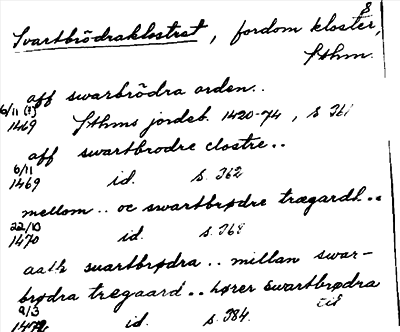 8
Svartbrödraklostret, fordom kloster,
Sthm.
aff swarbrödra orden..
6/11 (?)
1469 Sthms jordeb. 1420-74, s. 361
aff swartbrodre clostre..
6/11
1469 id. s. 362
mellom.. oc swartbrødre trægardh..
22/10
1470 id. s. 368
aalh suartbrødra.. millan swar-
brødra trægaard.. hører swartbrødra
till
9/3
1472 id. s. 384.